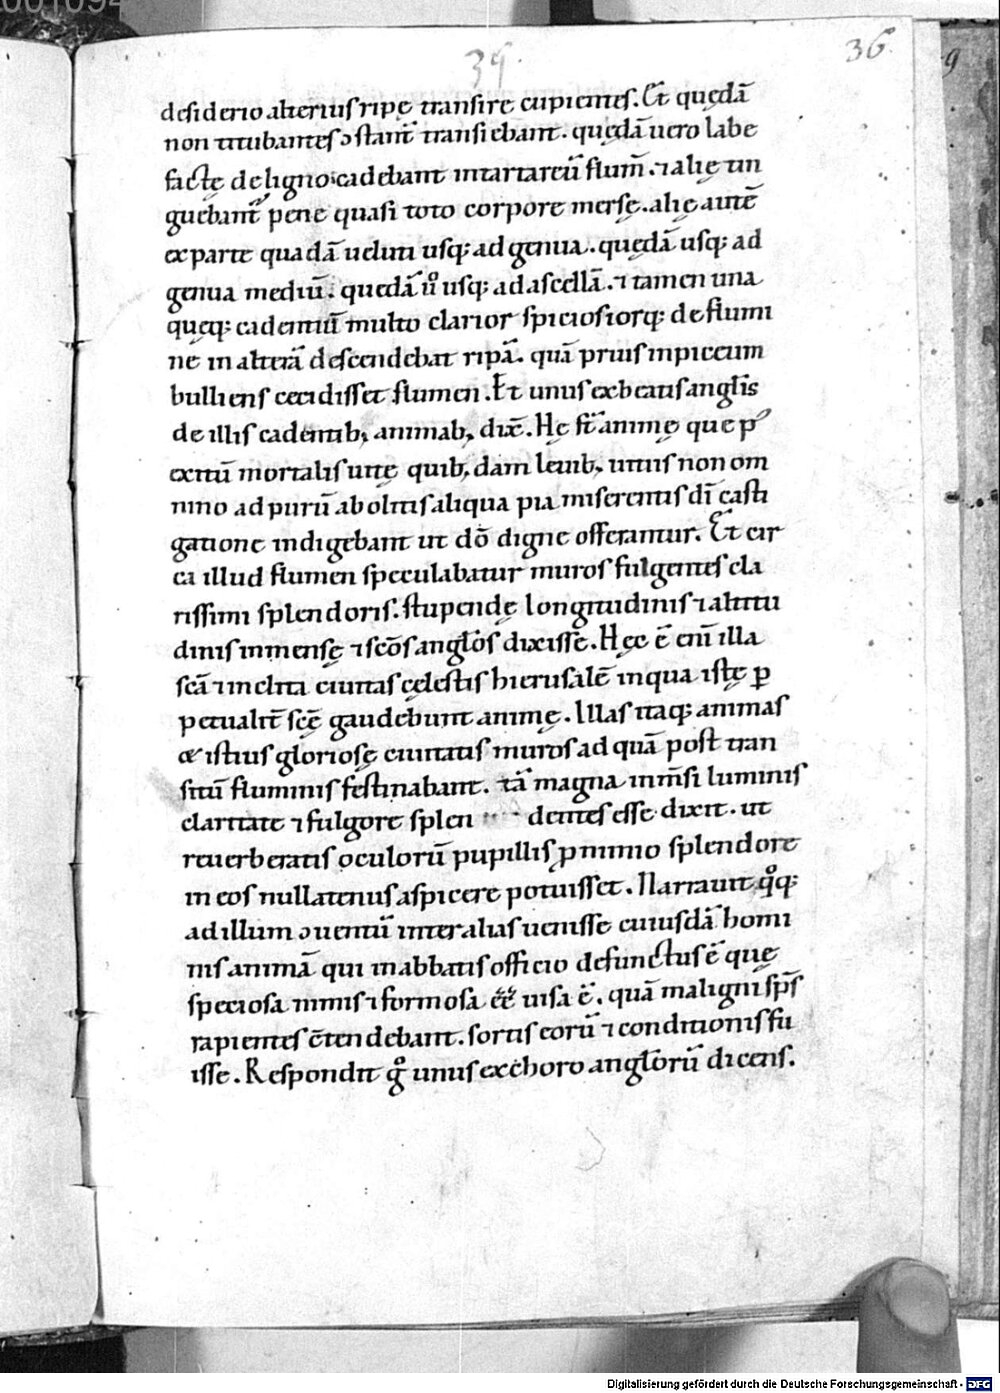 39.
36.
desiderio alterius ripę transire cupientes. Et quędā
non titubantes ɔstant̄ transiebant. quędā uero labe
factę de ligno cadebant in tartareū flum̄. ⁊ alię tin
guebant̄ pene quasi toto corpore mersę. alię autē
ex parte quadā uelut usq; ad genua. quędā usq; ad
genua mediū. quędā ů usq; ad ascellā. ⁊ tamen una
queq; cadentiū multo clarior spiciosiorq; de flumi
ne in alterā descendebat ripā. quā prius in piceum
bulliens cecidisset flumen. Et unus ex beatis angl̄is
de illis cadentib; animab; dix̄. Hę st̄ animę que p̕
exitū mortalis uitę quib; dam leuib; uitiis non om
nino ad purū abolitis aliqua pia miserentis dī casti
gatione indigebant ut dō digne offerantur. Et cir
ca illud flumen speculabatur muros fulgentes cla
rissimi splendoris. stupendę longitudinis ⁊ altitu
dinis inmensę ⁊ scōs angl̄os dixisse. Hęc ē enī illa
scā ⁊ inclita ciuitas cęlestis hierusalē in qua istę ꝑ
petualit̄ scę̄ gaudebunt animę. Illas itaq; animas
& istius gloriosę ciuitatis muros ad quā post tran
sitū fluminis festinabant. tā magna inm̄si luminis
claritate ⁊ fulgore splen dentes esse dixit. ut
reuerberatis oculorū pupillis ꝑ nimio splendore
in eos nullatenus aspicere potuisset. Narrauit q̊q;
ad illum ɔuentū inter alias uenisse cuiusdā homi
nis animā qui in abbatis officio defunctus ē quę
speciosa nimis ⁊ formosa ēē uisa ē. quā maligni sp̄s
rapientes c̄tendebant. sortis eorū ⁊ conditionis fu
isse. Respondit g̊ unus ex choro angl̄orū dicens.
Digitalisierung gefördert durch die Deutsche Forschungsgemeinschaft - DFG